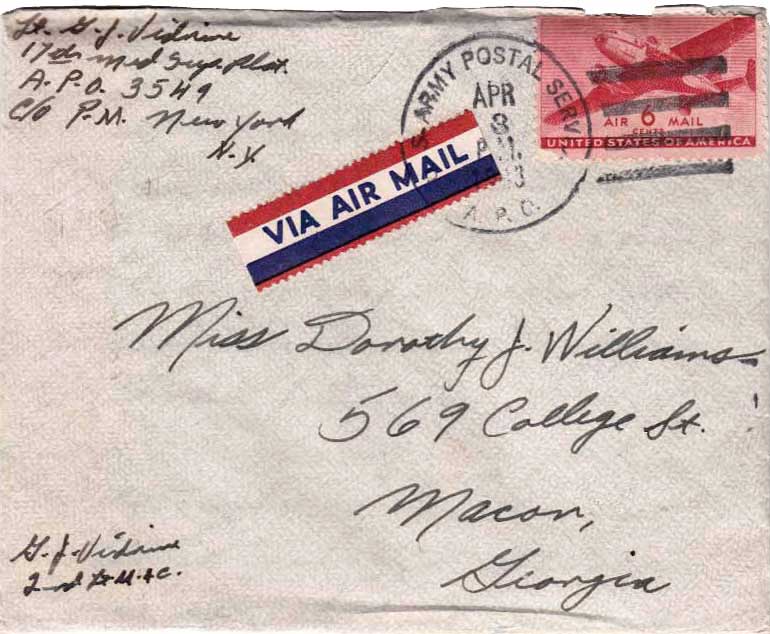 Lt. G. J. Vidrine
17th Med Sup. Plat.
A.P.O. 3549
c/o P.M. New York
N.Y.
ARMY POSTAL SERV
APR
3
A.P.O.
AIR 6 MAIL
CENTS
UNITED STATES OF AMERICA
VIA AIR MAIL
Miss Dorothy J. Williams
569 College St.
Macon,
Georgia
G. J. Vidrine
2nd Lt M.A.C.